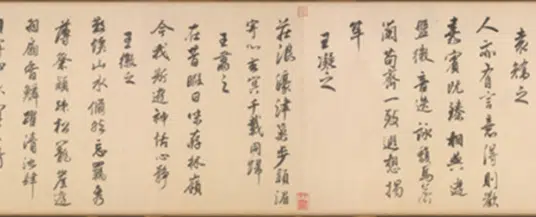 袁嶠之
人亦有言意得則歡
嘉賓既臻相與遊
盤微音迭詠馥焉若
蘭苟齊一致遐想揭
竿
王凝之
莊浪濠津巢步潁湄
心冥千載同歸
王肅之
在昔暇日味存林嶺
今我斯遊神怡心靜
王徽之
散懷山水儵然忘羈秀
薄粲穎疎松籠崖遊
羽扇霄鱗躍清池